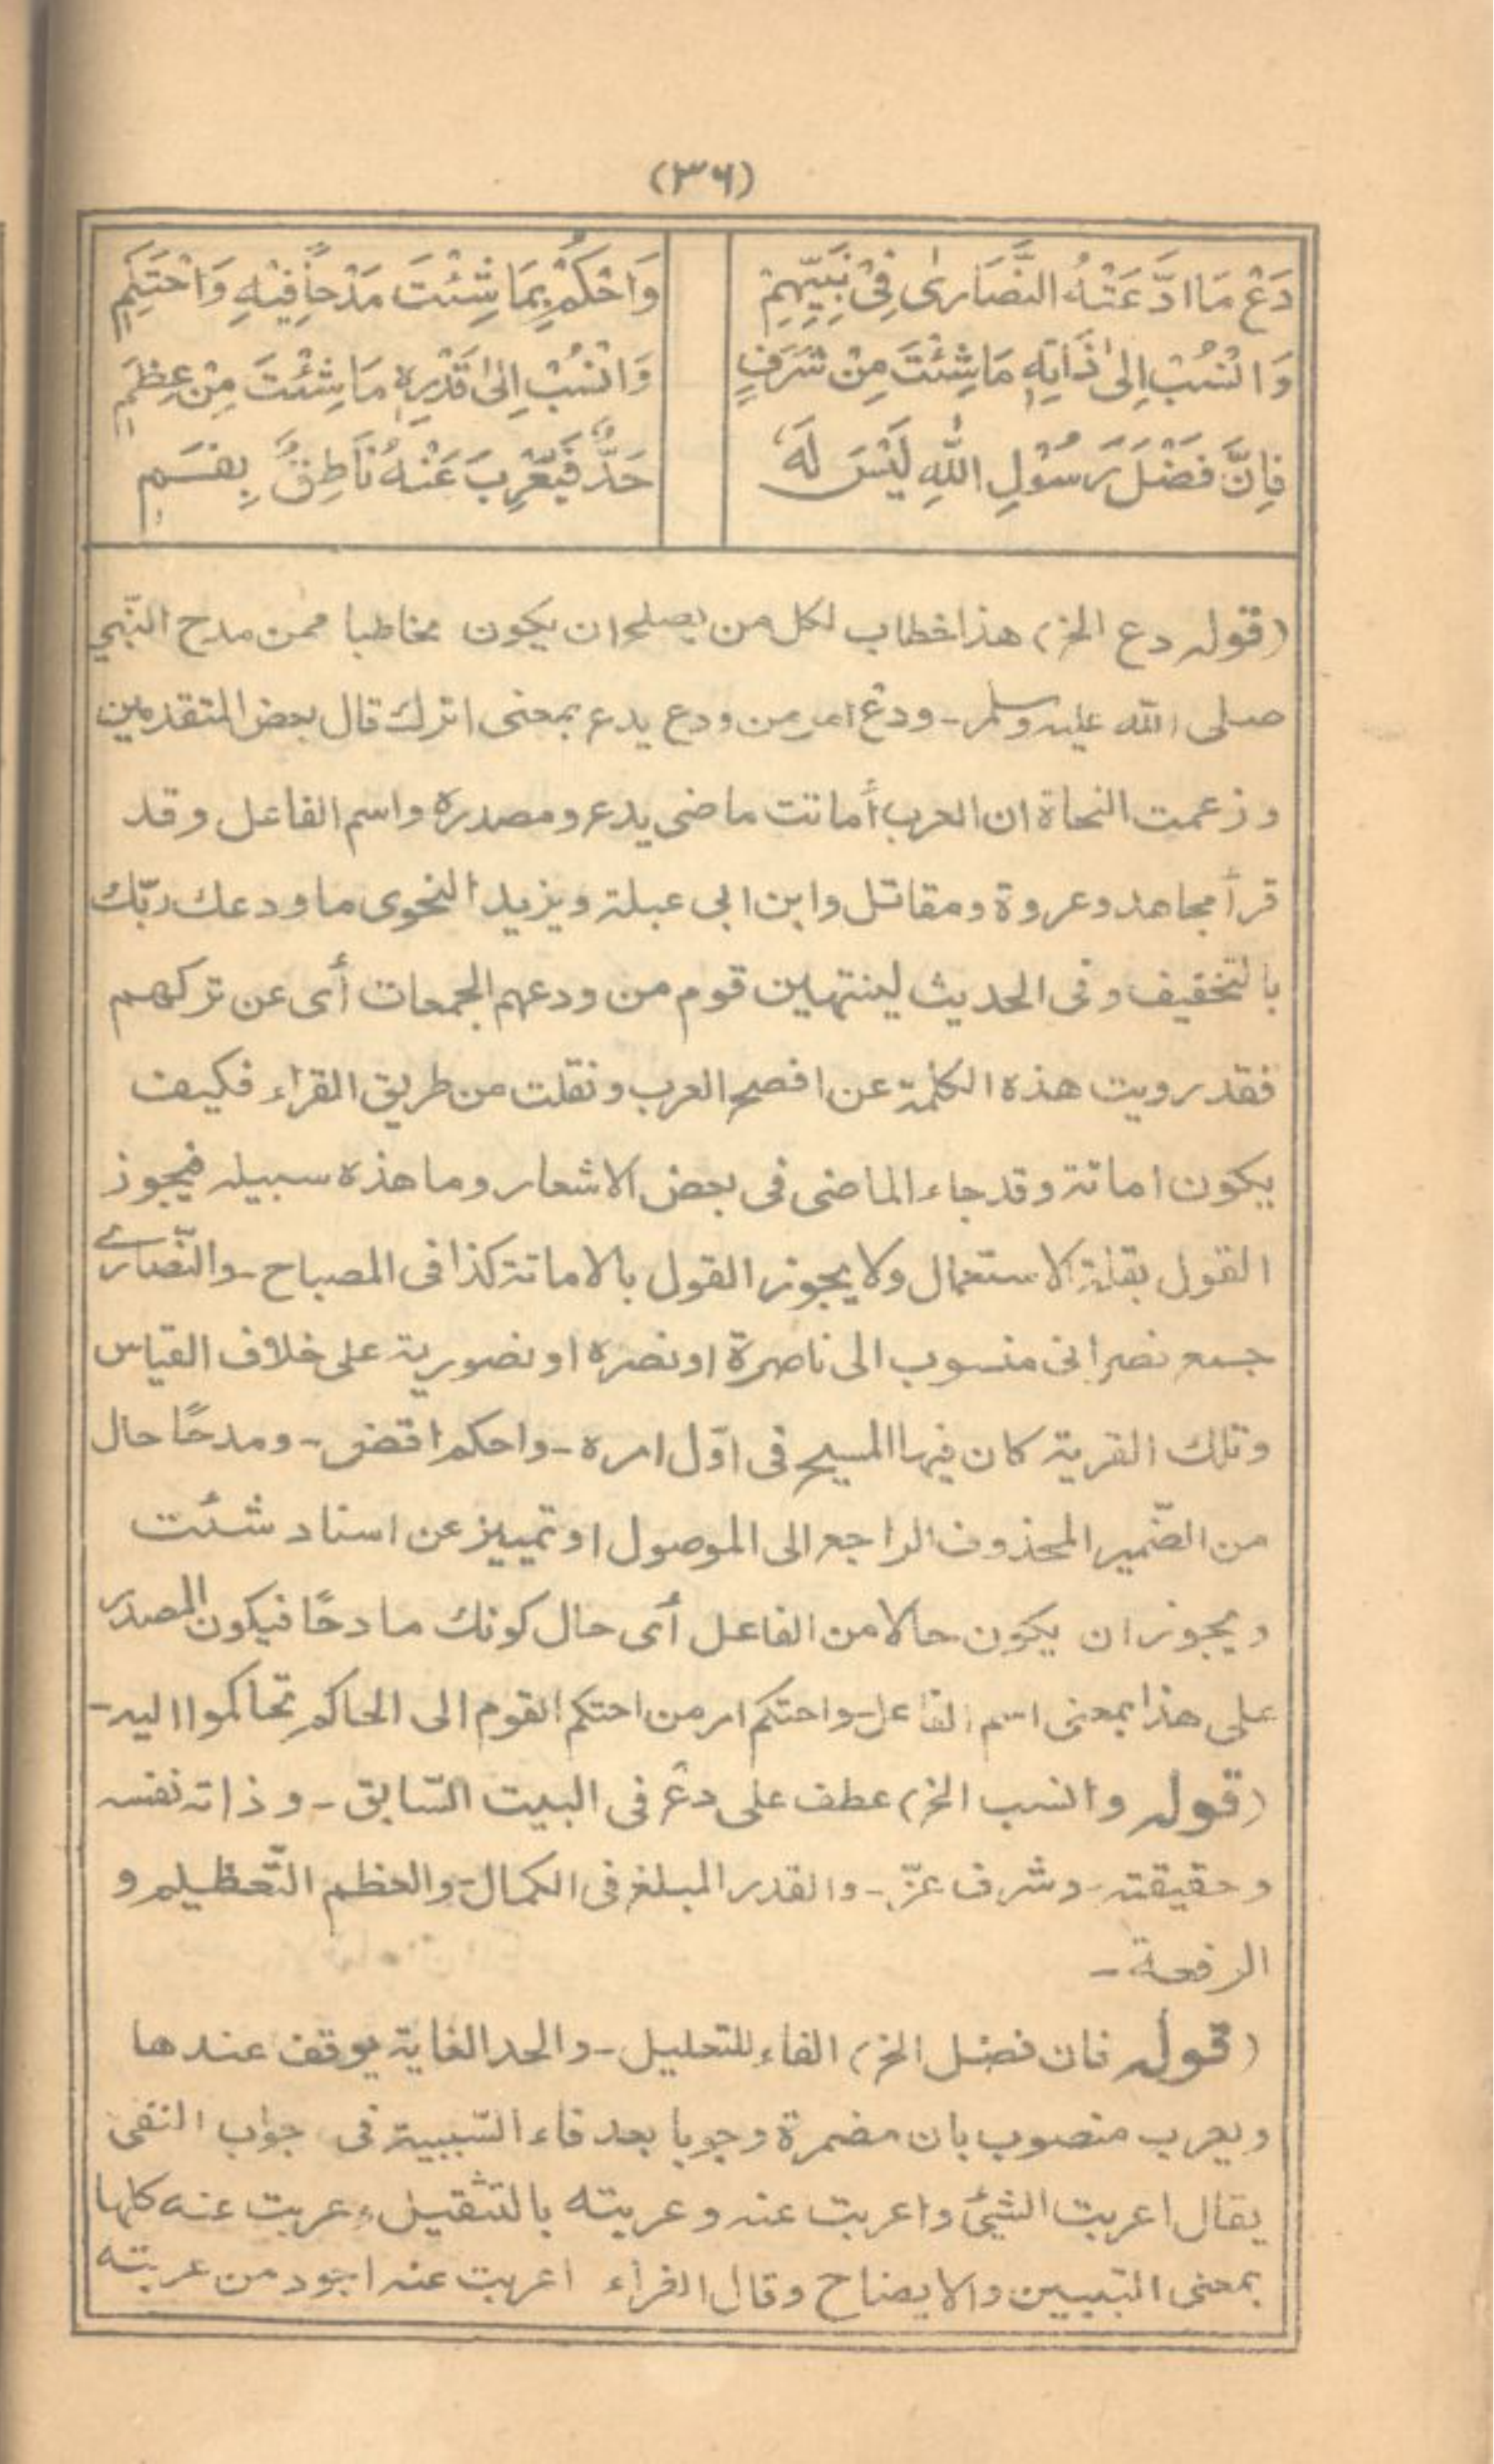 (٣٦)
دَعْ مَا ادَّعَتْهُ النَّصَارىٰ فِىْ نَبِيِّهِمِ وَاحْكُمْ بِمَا شِئْتَ مَدْحًا فِيْهِ وَاحْتَكِمِ
وَانْسُبْ اِلىٰ ذَاتِهٖ مَا شِئْتَ مِنْ شَرَفٍ وَانْسُبْ اِلىٰ قَدْرِهٖ مَا شِئْتَ مِنْ عِظَمٖ
فَاِنَّ فَضْلَ رَسُوْلِ اللّٰهِ لَيْسَ لَهٗ حَدٌّ فَيُعْرِبَ عَنْهُ نَاطِقٌ بِفَــمٖ
(قوله دع الخ) هذا خطاب لكل من يصلح ان يكون مخاطبا ممن مدح النّبي
صلى الله عليه وسلم - ودعْ امر من ودع يدع بمعنى اترك قال بعض المتقدمين
وزعمت النحاة ان العرب أماتت ماضى يدع ومصدره واسم الفاعل وقد
قرأ مجاهد وعروة ومقاتل وابن ابى عبلة ويزيد النحوى ما ودعك ربّك
بالتخفيف وفى الحديث لينتهين قوم من ودعهم الجمعات أى عن تركهم
فقد رويت هذه الكلمة عن افصح العرب ونقلت من طريق القراء فكيف
يكون اماتة وقد جاء الماضى فى بعض الاشعار وما هذه سبيله فيجوز
القول بقلة الاستعمال ولا يجوز القول بالاماتة كذا فى المصباح - والنّصارے
جمع نصرانى منسوب الى ناصرة او نصره او نصورية على خلاف القياس
وتلك القرية كان فيها المسيح فى اوّل امره - واحكم اقض - ومدحًا حال
من الضّمير المحذوف الراجع الى الموصول او تمييز عن اسناد شئت
ويجوز ان يكون حالا من الفاعل أى حال كونك مادحًا فيكون المصدر
على هذا بمعنى اسم الفاعل - واحتكم امر من احتكم القوم الى الحاكم تحاكموا اليه -
(قوله وانسب الخ) عطف على دعْ فى البيت السّابق - وذاته نفسه
وحقيقته - وشرف عزّ - والقدر المبلغ فى الكمال - والعظم التّعظيم و
الرفعة -
(قوله فان فضل الخ) الفاء للتعليل - والحد الغاية يوقف عندها
ويعرب منصوب بان مضمرة وجوبا بعد فاء السّببية فى جواب النفى
يقال اعربت الشئ واعربت عنه وعربته بالتثقيل وعربت عنه كلها
بمعنى التبيين والايضاح وقال الفراء اعربت عنه اجود من عربته